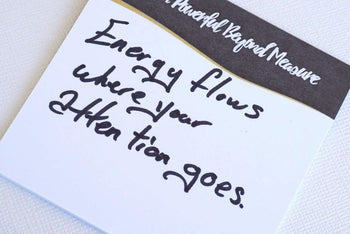 Powerful Beyond Measure
Energy flows
where your
attention goes.